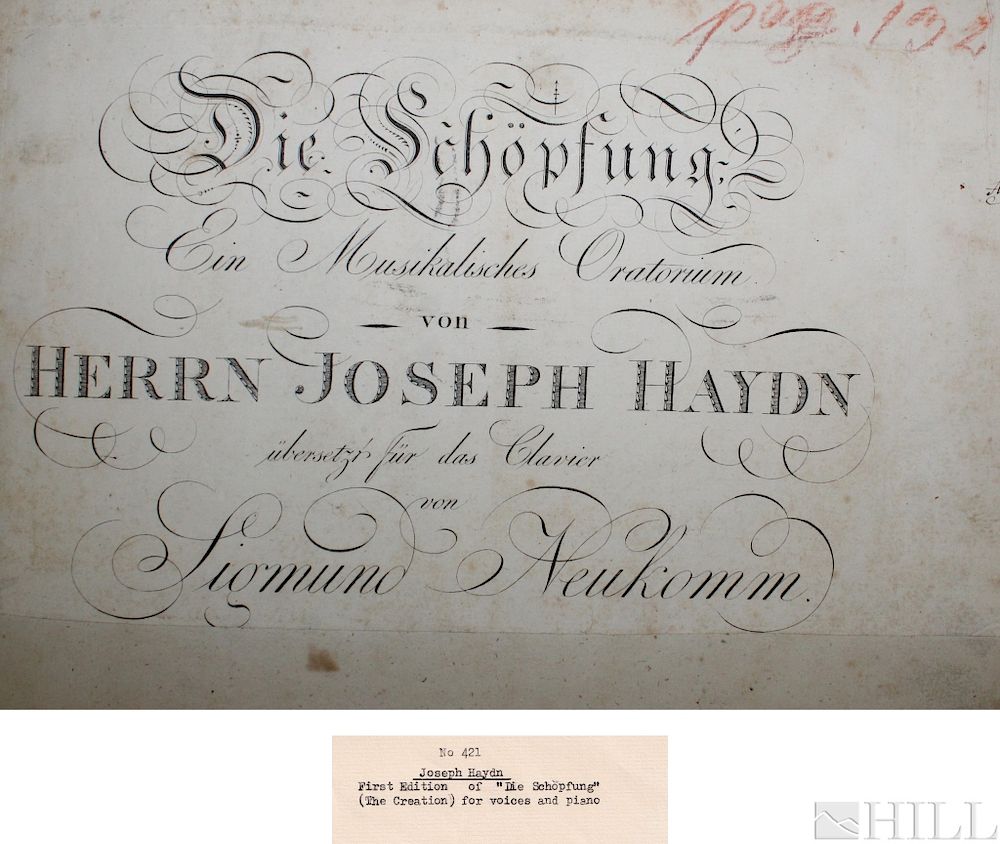 pag. 132
Die Schöpfung;
Ein Musikalisches Oratorium.
von
HERRN JOSEPH HAYDN
übersetzt für das Clavier
von
Sigmund Neukomm.
No 421
Joseph Haydn
First Edition of "Die Schöpfung"
(The Creation) for voices and piano
HILL